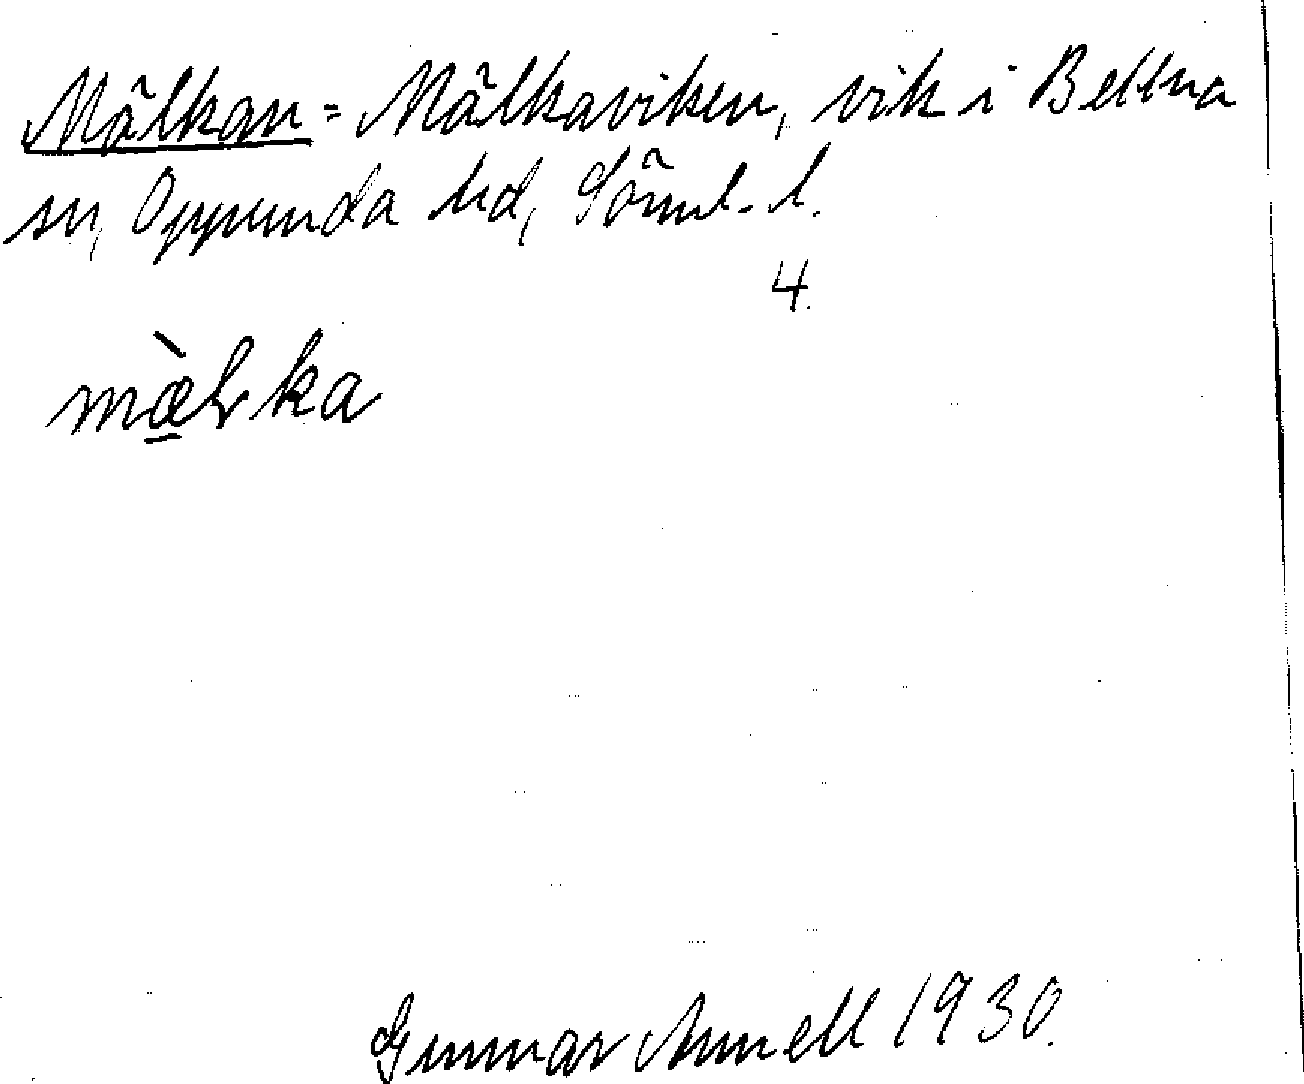 Mälkan = Mälkaviken, vik i Bettna
sn, Oppunda hd, Söml. l.
4.
mæ̀lka
Gunnar Annell 1930.